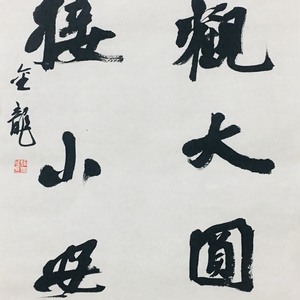 觀大圓
接小毋
金龍